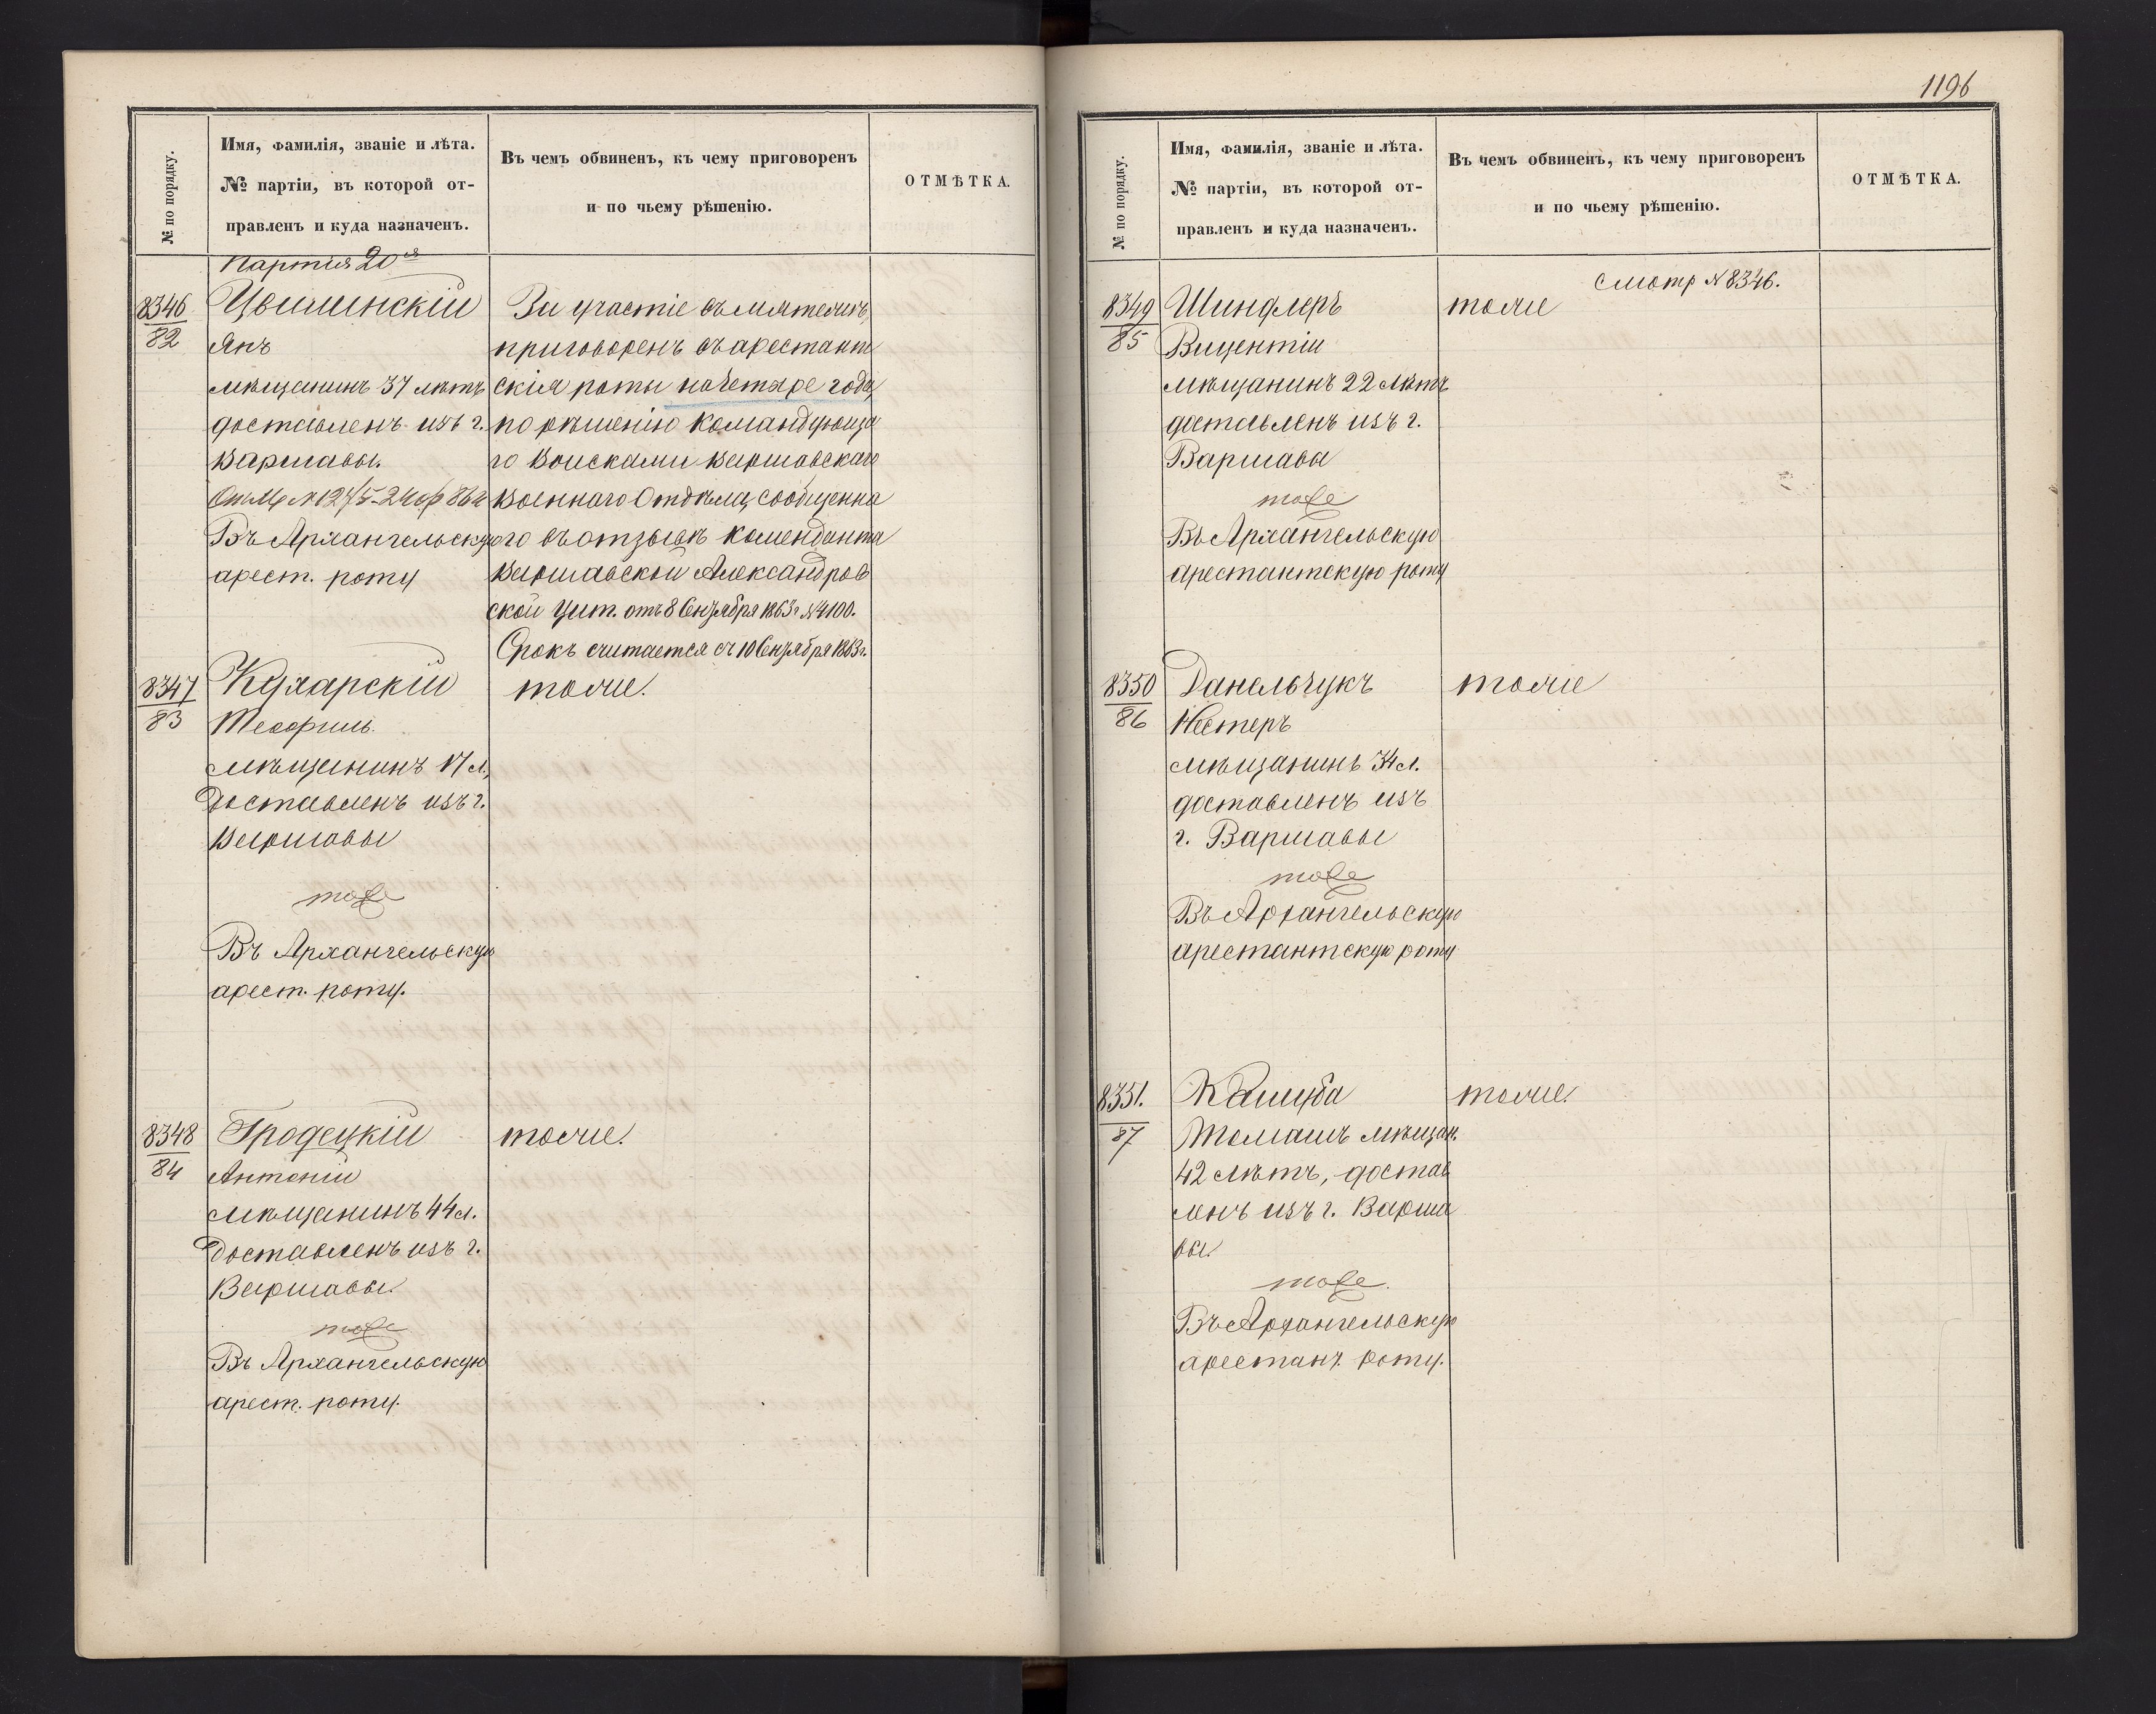 № по порядку.
Имя, фамилія, званіе и лѣта.
№ партіи, въ которой от-
правленъ и куда назначенъ.
Въ чемъ обвиненъ, къ чему приговоренъ
и по чьему рѣшенію.
ОТМѢТКА.
Партія 20я
8346
82
Цвилинскій
Янъ
мѣщанинъ 37 лѣтъ
доставленъ изъ г.
Варшавы.
Въ Архангельскую
арест. роту
За участіе въ мятежѣ,
приговоренъ въ арестант
скія роты на четыре года,
по рѣшенію Командующа
го Войсками Варшавскаго
Военнаго Отдѣла, сообщенна
го въ отзывѣ Коменданта
Варшавской Александров
ской Цит. отъ 8 Сентября 1863 г. № 4100.
Срокъ считается съ 10 Сентября 1863 г.
8347
83
Кухарскій
Теофиль.
мѣщанинъ 17 л.,
доставленъ изъ г.
Варшавы
тоже
Въ Архангельскую
арест. роту.
тоже.
8348
84
Гродецкій
Антоній
мѣщанинъ 44 л.
доставленъ изъ г.
Варшавы.
тоже
Въ Архангельскую
арест. роту.
тоже.
1196
№ по порядку.
Имя, фамилія, званіе и лѣта.
№ партіи, въ которой от-
правленъ и куда назначенъ.
Въ чемъ обвиненъ, къ чему приговоренъ
и по чьему рѣшенію.
ОТМѢТКА.
Смотр № 8346.
8349
85
Шиндлеръ
Вицентій
мѣщанинъ 22 лѣтъ
доставленъ изъ г.
Варшавы
тоже
Въ Архангельскую
арестантскую роту
тоже
8350
86
Данельчукъ
Нестеръ
мѣщанинъ 34 л.
доставленъ изъ
г. Варшавы
тоже
Въ Архангельскую
арестантскую роту
тоже
8351.
87
Кашуба
Томашъ мѣщан.
42 лѣтъ, достав
ленъ изъ г. Варша
вы.
тоже.
Въ Архангельскую
арестант. роту.
тоже.